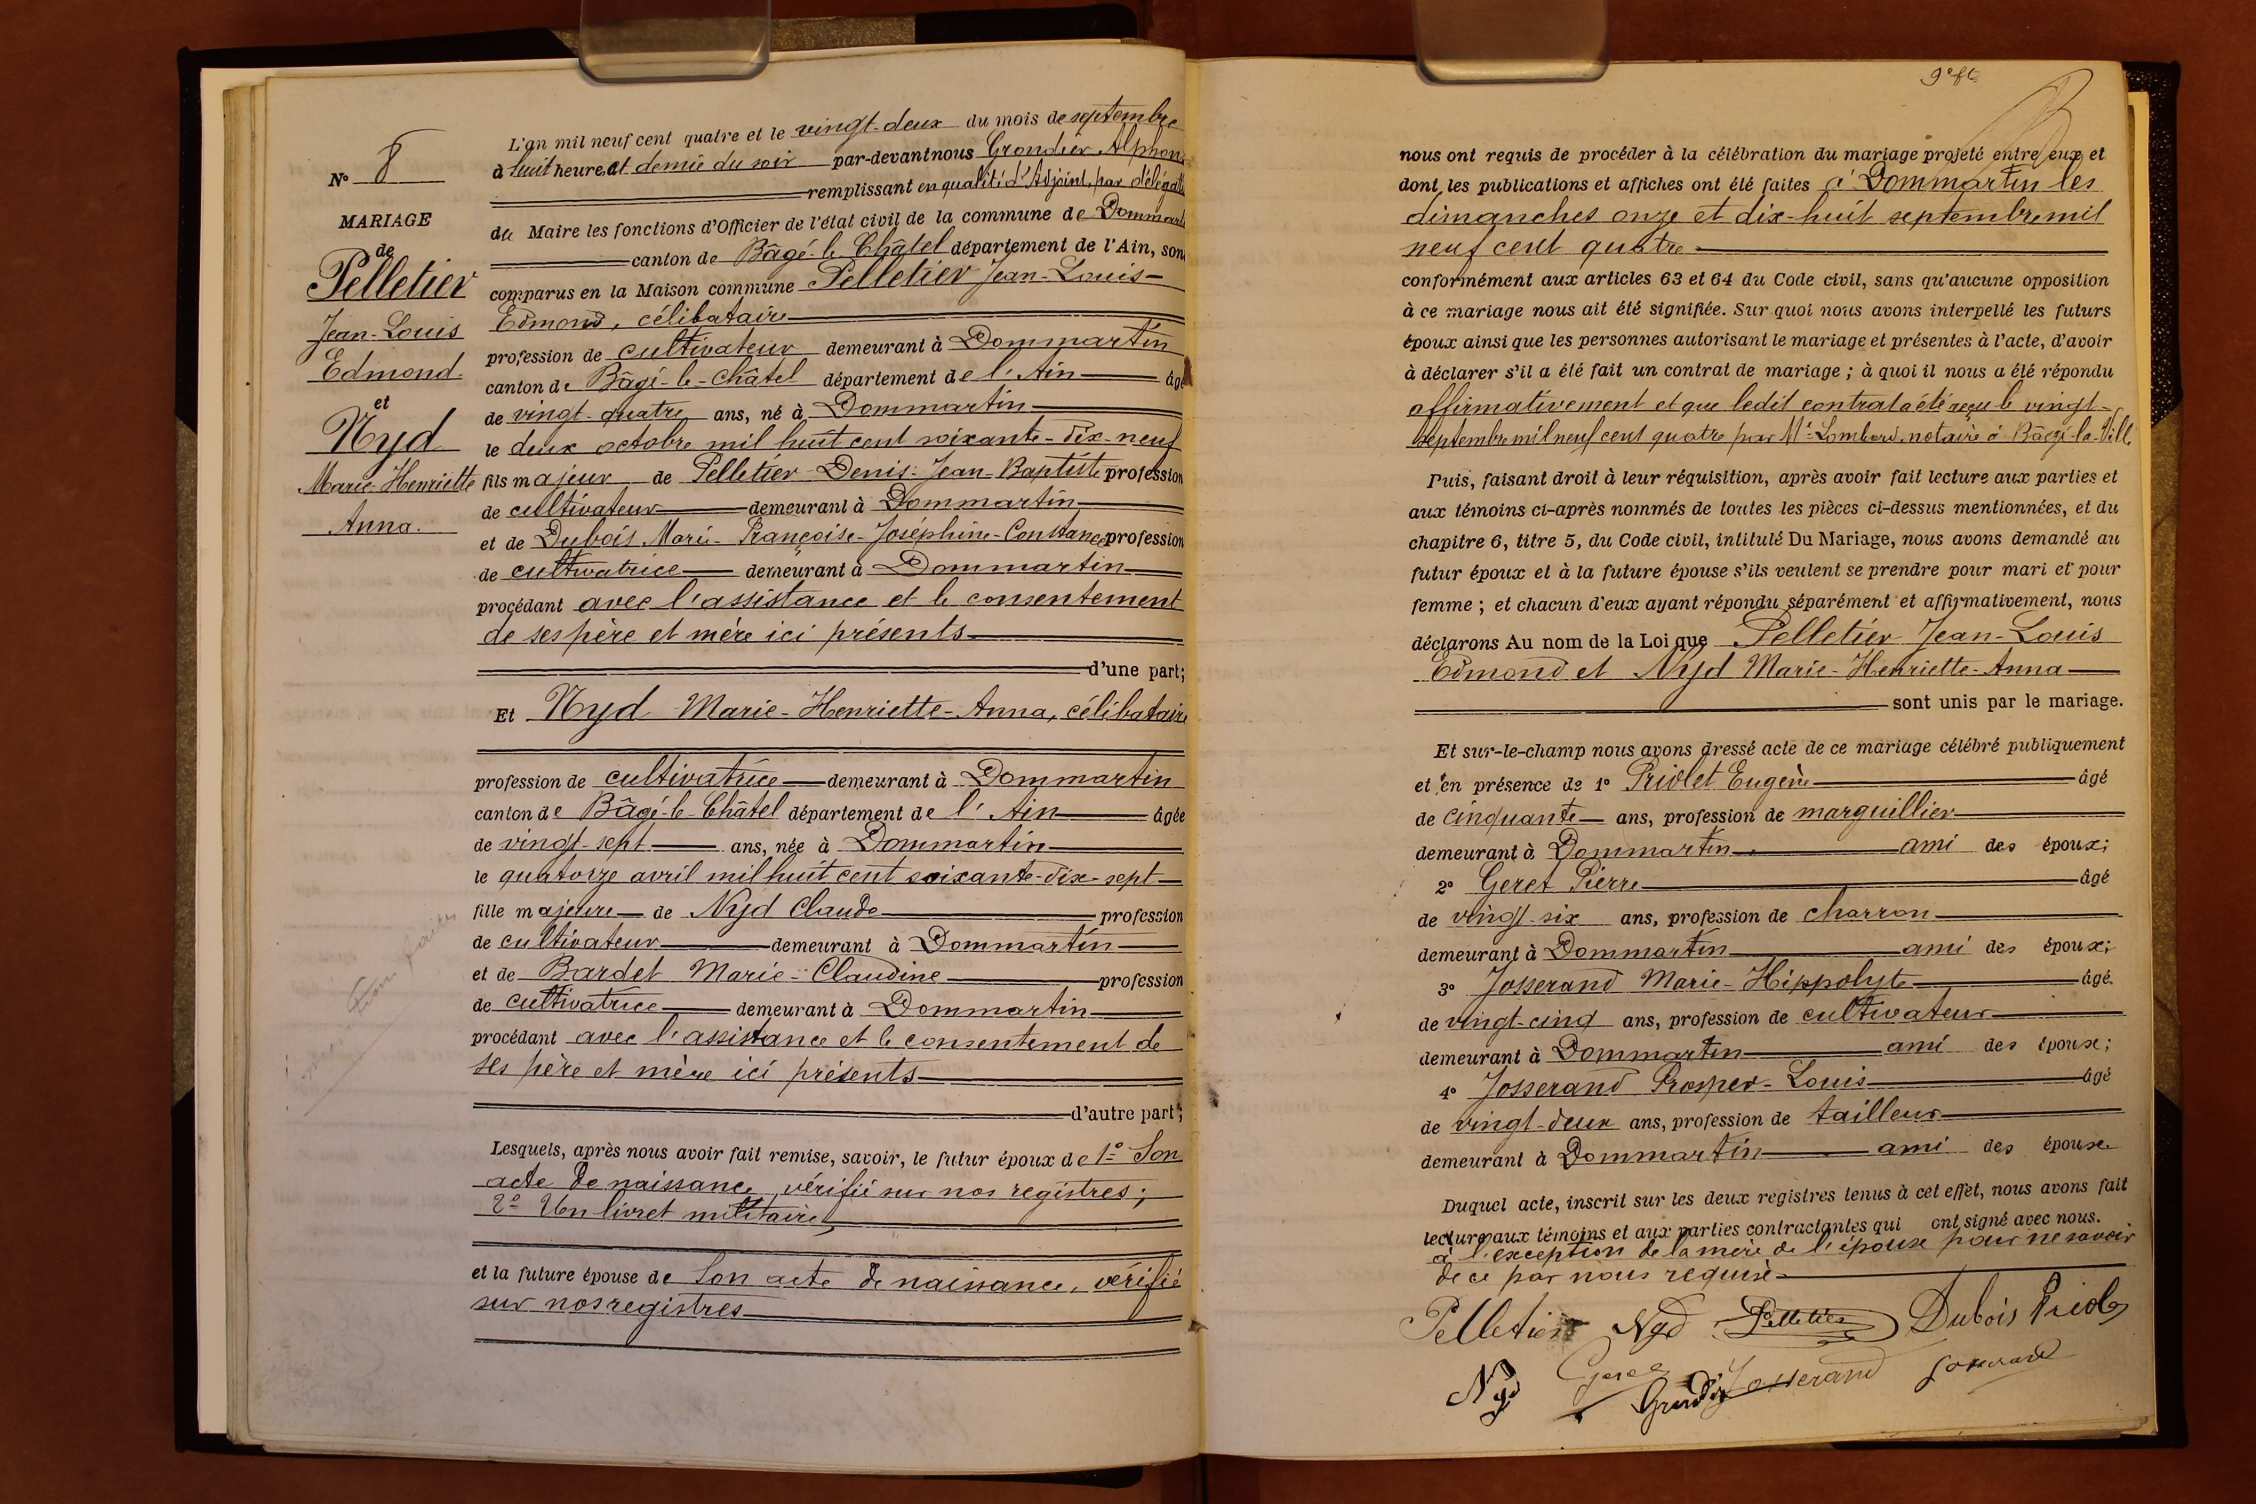 N° 8
MARIAGE
de
Pelletier
Jean-Louis
Edmond
et
Nyd
Marie-Henriette
Anna.
L'an mil neuf cent quatre et le vingt-deux du mois de septembre
à huit heures et demie du soir par-devant nous Grondier Alphons
remplissant en qualité d'Adjoint, par déléga
du Maire les fonctions d'Officier de l'état civil de la commune de Dommart
canton de Bâgé-le-Châtel département de l'Ain, son
comparus en la Maison commune Pelletier Jean-Louis-
Edmond, célibataire
profession de cultivateur demeurant à Dommartin
canton de Bâgé-le-Châtel département de l'Ain âgé
de vingt-quatre ans, né à Dommartin
le deux octobre mil huit cent soixante-dix-neuf
fils majeur de Pelletier Denis-Jean-Baptiste profession
de cultivateur demeurant à Dommartin
et de Dubois Marie-Françoise-Joséphine-Constance profession
de cultivatrice demeurant à Dommartin
procédant avec l'assistance et le consentement
de ses père et mère ici présents
d'une part;
Et Nyd Marie-Henriette-Anna, célibataire
profession de cultivatrice demeurant à Dommartin
canton de Bâgé-le-Châtel département de l'Ain âgée
de vingt-sept ans, née à Dommartin
le quatorze avril mil huit cent soixante-dix-sept
fille majeure de Nyd Claude profession
de cultivateur demeurant à Dommartin
et de Bardet Marie-Claudine profession
de cultivatrice demeurant à Dommartin
procédant avec l'assistance et le consentement de
ses père et mère ici présents
d'autre part;
Lesquels, après nous avoir fait remise, savoir, le futur époux de 1° Son
acte de naissance, vérifié sur nos registres;
2° Un livret militaire,
et la future épouse de Son acte de naissance, vérifié
sur nos registres
nous ont requis de procéder à la célébration du mariage projeté entre eux et
dont les publications et affiches ont été faites à Dommartin les
dimanches onze et dix-huit septembre mil
neuf cent quatre
conformément aux articles 63 et 64 du Code civil, sans qu'aucune opposition
à ce mariage nous ait été signifiée. Sur quoi nous avons interpellé les futurs
époux ainsi que les personnes autorisant le mariage et présentes à l'acte, d'avoir
à déclarer s'il a été fait un contrat de mariage; à quoi il nous a été répondu
affirmativement et que ledit contrat a été reçu le vingt-
septembre mil neuf cent quatre par Me Lombard, notaire à Bâgé-la-Ville
Puis, faisant droit à leur réquisition, après avoir fait lecture aux parties et
aux témoins ci-après nommés de toutes les pièces ci-dessus mentionnées, et du
chapitre 6, titre 5, du Code civil, intitulé Du Mariage, nous avons demandé au
futur époux et à la future épouse s'ils veulent se prendre pour mari et pour
femme; et chacun d'eux ayant répondu séparément et affirmativement, nous
déclarons Au nom de la Loi que Pelletier Jean-Louis
Edmond et Nyd Marie-Henriette-Anna
sont unis par le mariage.
Et sur-le-champ nous avons dressé acte de ce mariage célébré publiquement
et en présence de 1° Priolet Eugène âgé
de cinquante ans, profession de marguillier
demeurant à Dommartin ami des époux;
2° Geret Pierre âgé
de vingt-six ans, profession de charron
demeurant à Dommartin ami des époux;
3° Josserand Marie-Hippolyte âgé
de vingt-cinq ans, profession de cultivateur
demeurant à Dommartin ami des époux;
4° Josserand Prosper-Louis âgé
de vingt-deux ans, profession de tailleur
demeurant à Dommartin ami des époux
Duquel acte, inscrit sur les deux registres tenus à cet effet, nous avons fait
lecture aux témoins et aux parties contractantes qui ont signé avec nous.
à l'exception de la mère de l'épouse pour ne savoir
de ce par nous requise
Pelletier Nyd Pelletier Dubois
Nyd Geret Grondier Josserand Josserand